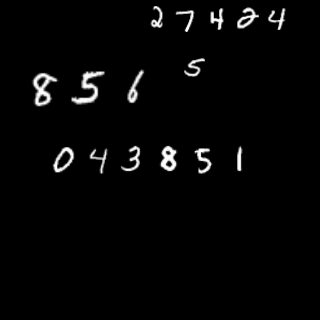 27424
5
856
043851